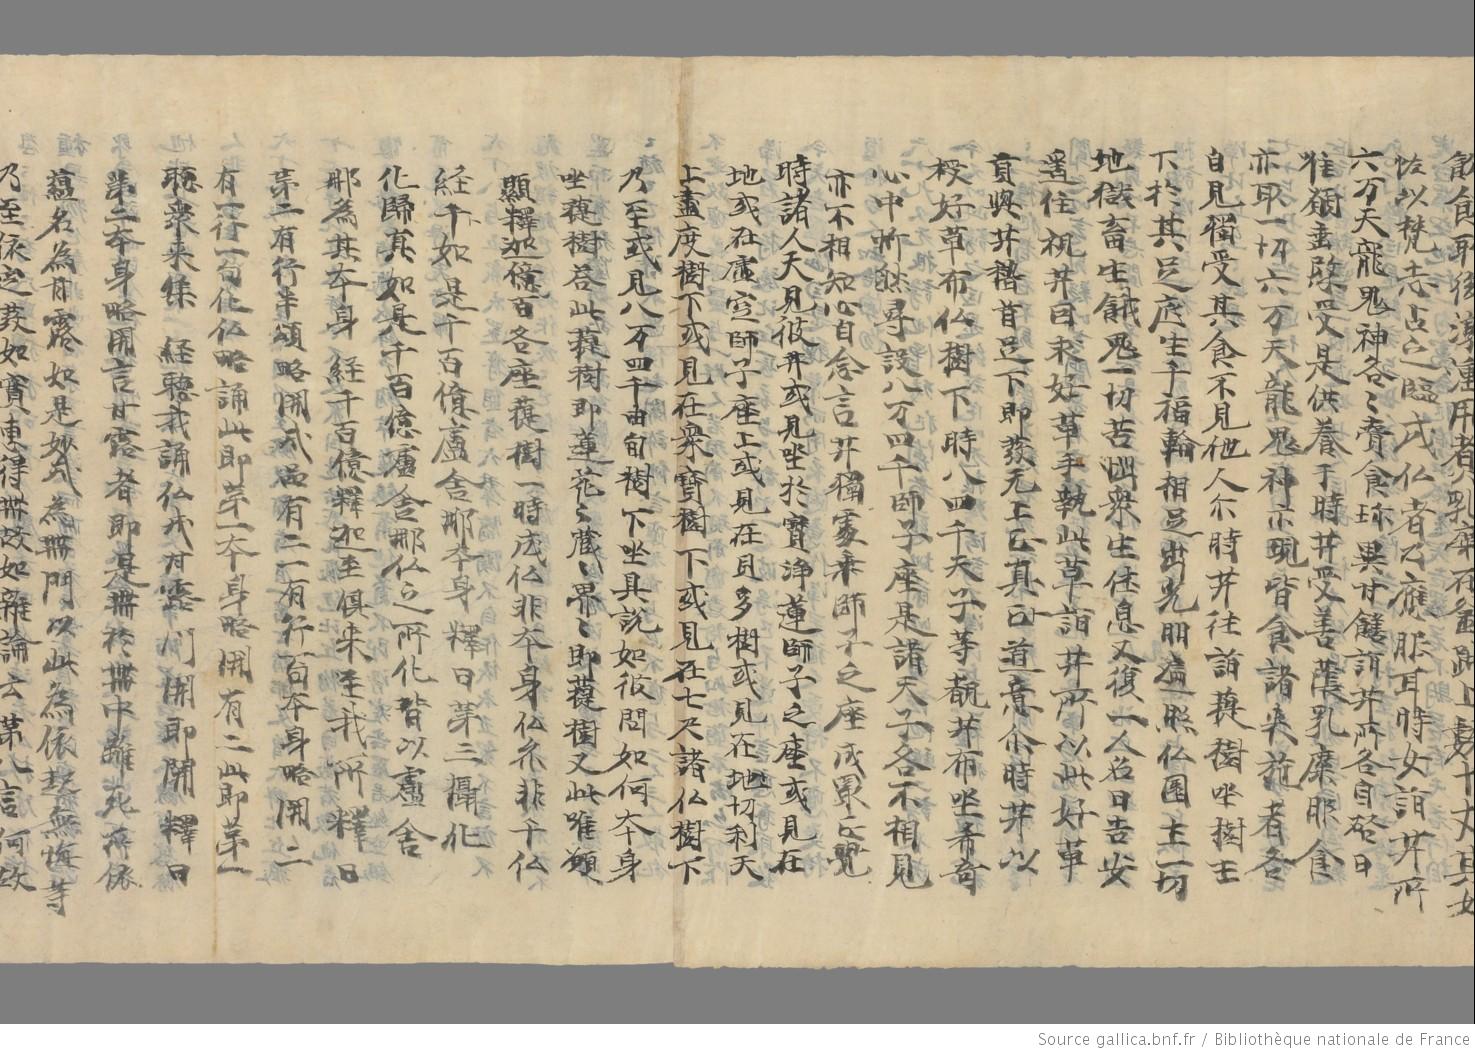 飲食取後湩用者火乳糜在釜踊上數十丈其女
恠以梵志占之臨成仏者乃應服耳時女詣井所
六万天龍鬼神各〻賷食琢異甘饍詣井所各自啓曰
唯願垂愍受是供養于時井受善蔭乳糜服食
亦取一切六万天龍鬼神亦現皆食諸来龍者各
自見獨受其食不見他人尒時井往詣菩樹坐樹王
下於其足底生千福輪相足出光明遍照仏国土一切
地獄畜生餓鬼一切苦惱衆生住息又復一人名曰吉安
遥住視井曰求好草手執此草詣井所以此好草
貢與井稽首足下即發无上正真正道意尒時井以
授好草布仏樹下時八四千天子等覩井布坐希奇
心中忻然尋設八万四千師子座是諸天子各不相見
亦不相知心自念言井獨處乘師子之座成冣正覺
時諸人天見彼井或見坐於寳浄蓮師子之座或見在
地或在虛空師子座上或見在貝多樹或見在地切利天
上晝度樹下或見在衆寳樹下或見在七尺諸仏樹下
乃至或見八万四千由旬樹下坐具説如彼問如何夲身
坐菩樹荅此菩樹即蓮花〻蔵〻界〻即菩樹又此唯願
顯釋迦億百各座菩樹一時成仏非夲身仏亦非千仏
経千如是千百億盧舎那夲身釋曰第三攝化
化歸真如是千百億盧舎那仏之所化皆以盧舎
那為其夲身経千百億釋迦至俱来至我所釋曰
第二有行半頌略開戒品有二一有行一百夲身略開二
有一行一句化仏略誦此即第一夲身略開有二此即第一
聽衆来集経聽我誦仏戒甘露門開即開釋曰
第二夲身略開言甘露者即是無於無中離死所依
蕴名為甘露如是妙戒為無門以此為依趣無悔等
乃至依定發如實惠得無故如雜論云第八言何故
Source gallica.bnf.fr / Bibliothèque nationale de France